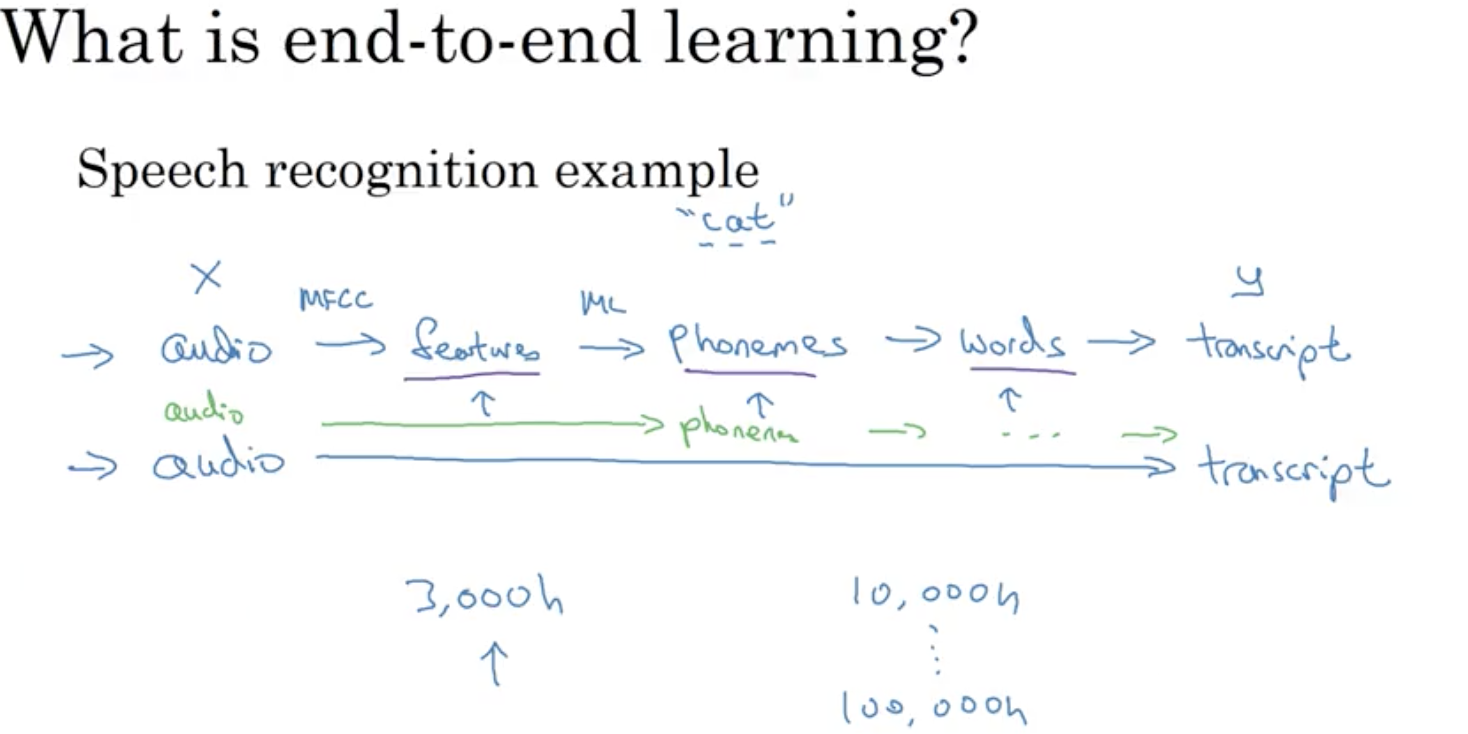 What is end-to-end learning?
Speech recognition example
"cat"
X y
MFCC ML
→ audio → features → phonemes → words → transcript
audio → phonemes → ... →
→ audio → transcript
3,000h 10,000h
100,000h